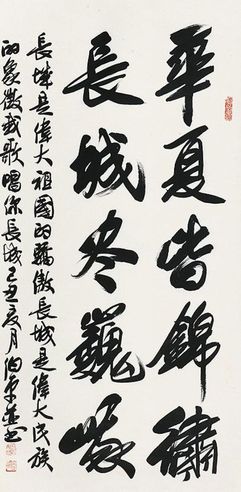 華夏皆錦繡
長城尽巍峨
長城是偉大祖國的驕傲長城是偉大民族
的象徵我歌唱你長城己丑夏月伯